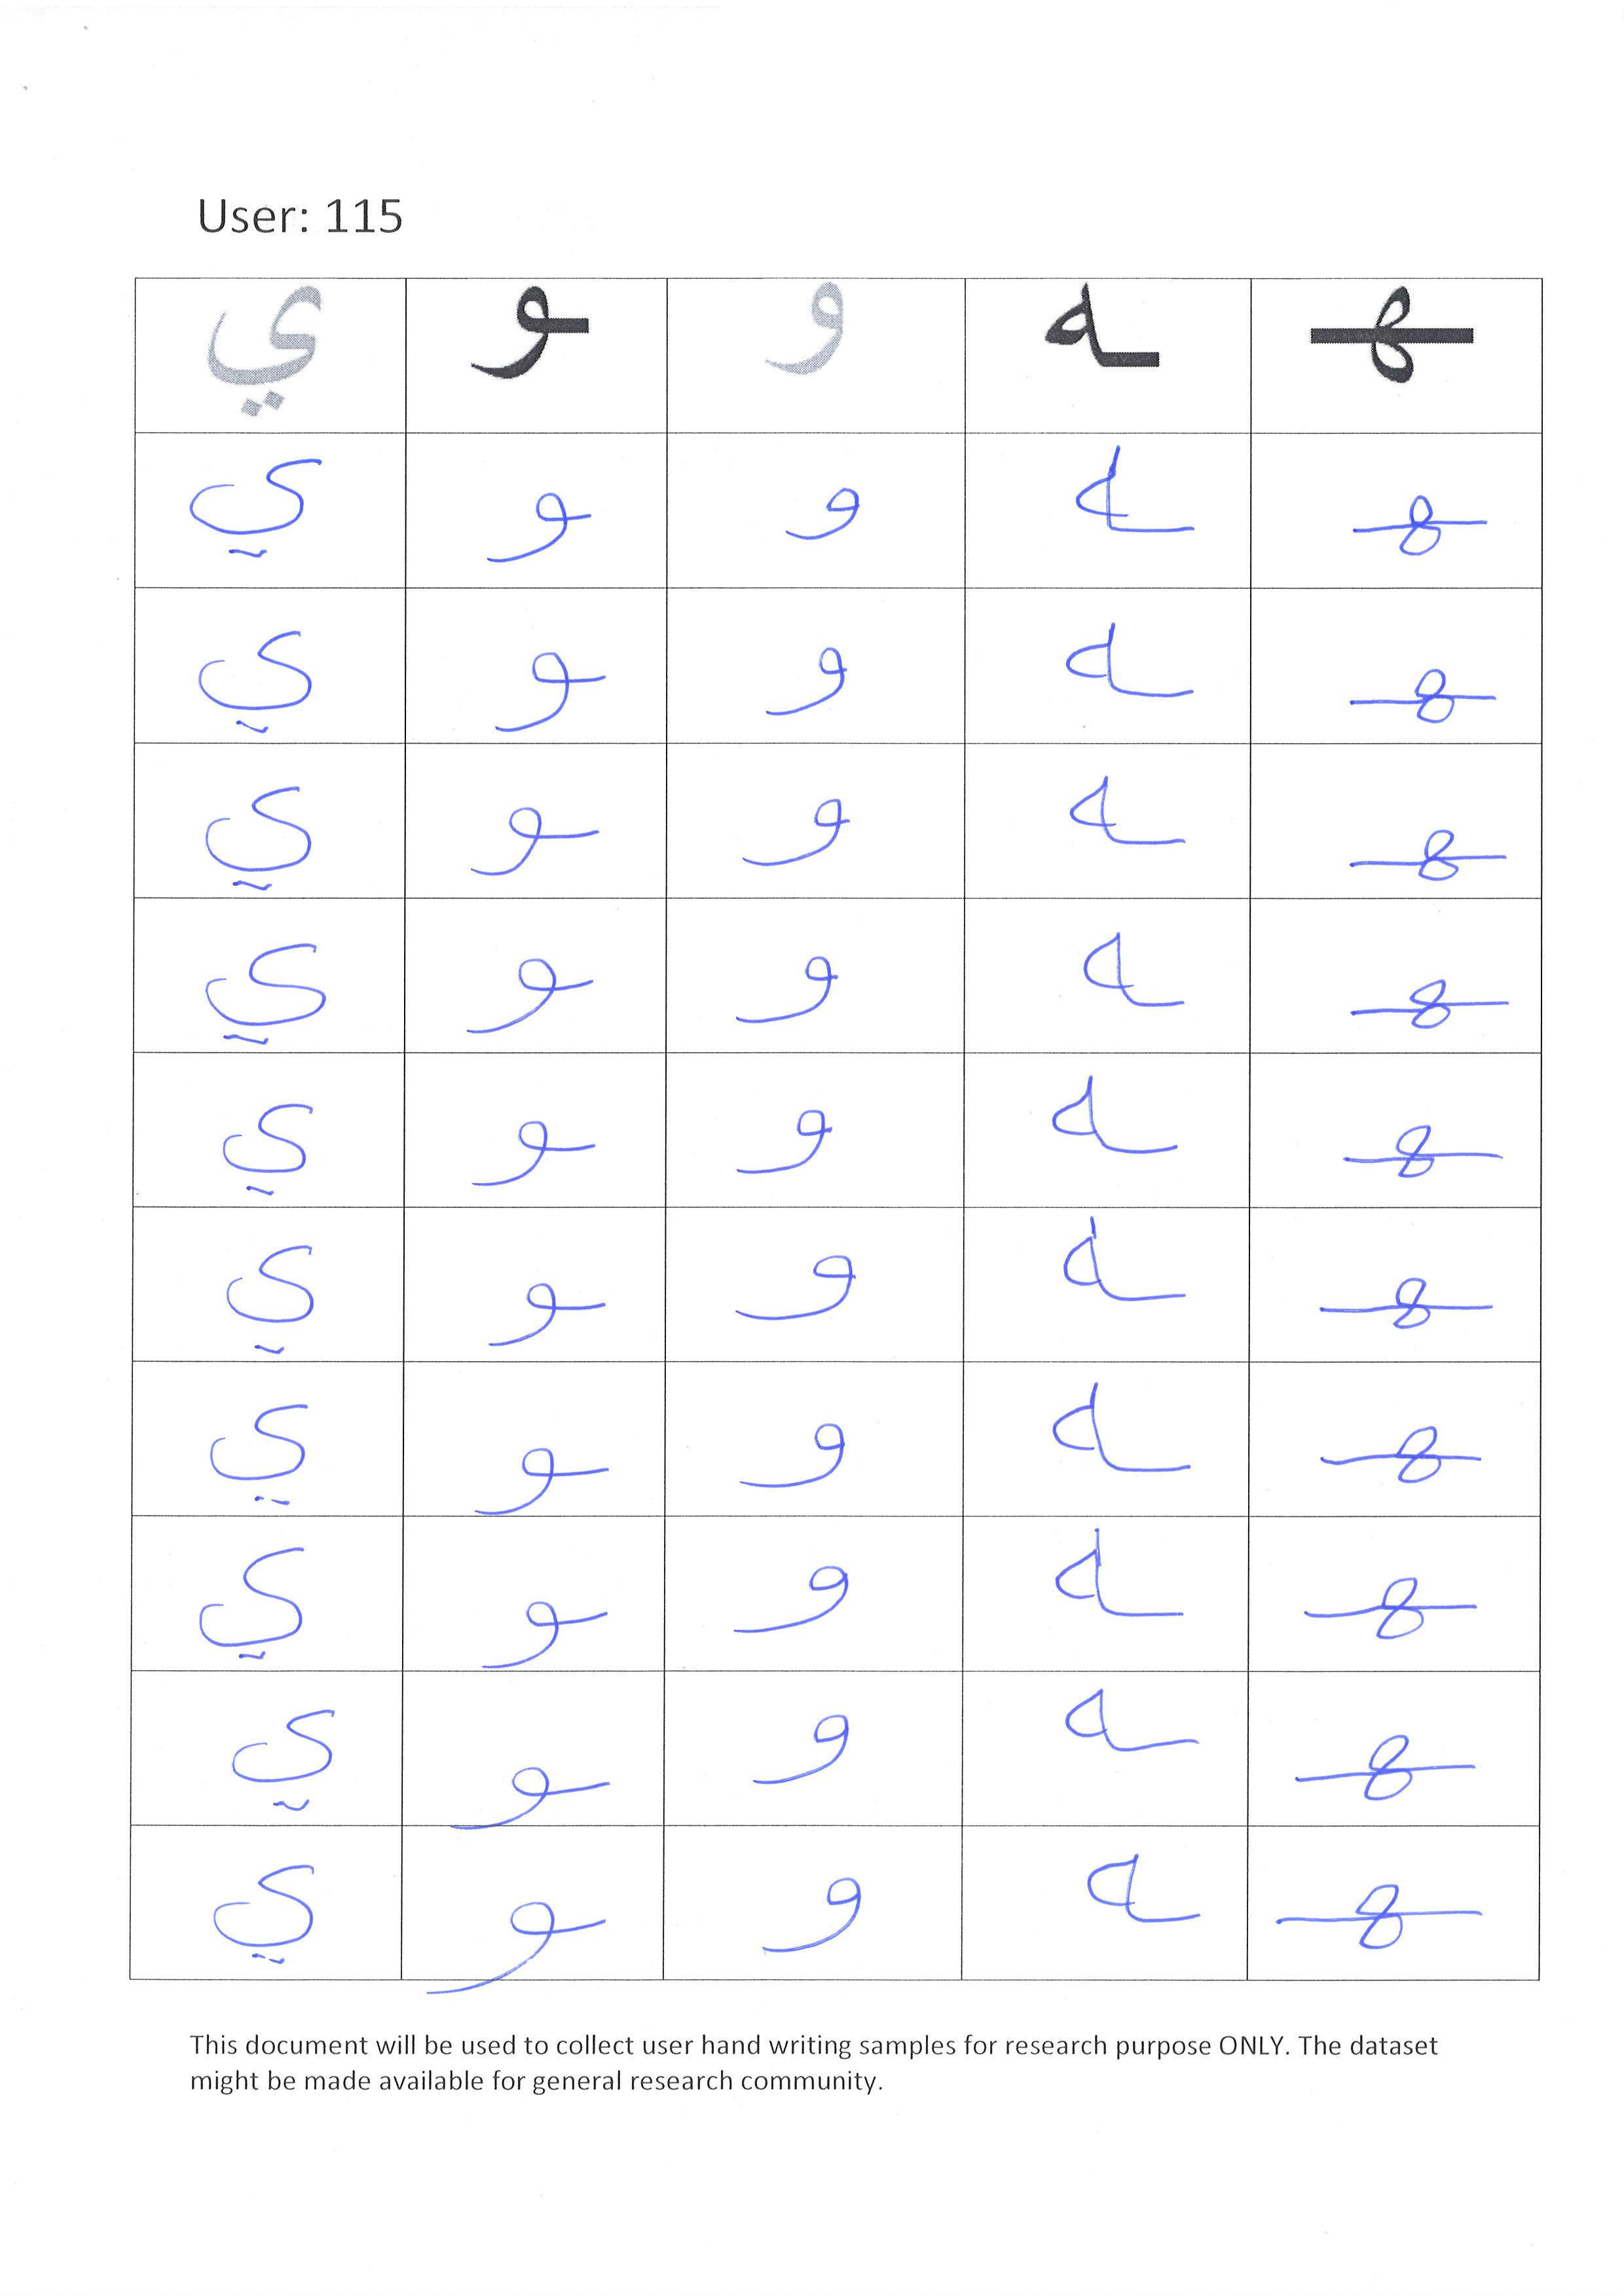 User: 115
ي ـو و ـه ـهـ
ي ـو و ـه ـهـ
ي ـو و ـه ـهـ
ي ـو و ـه ـهـ
ي ـو و ـه ـهـ
ي ـو و ـه ـهـ
ي ـو و ـه ـهـ
ي ـو و ـه ـهـ
ي ـو و ـه ـهـ
ي ـو و ـه ـهـ
ي ـو و ـه ـهـ
This document will be used to collect user hand writing samples for research purpose ONLY. The dataset
might be made available for general research community.